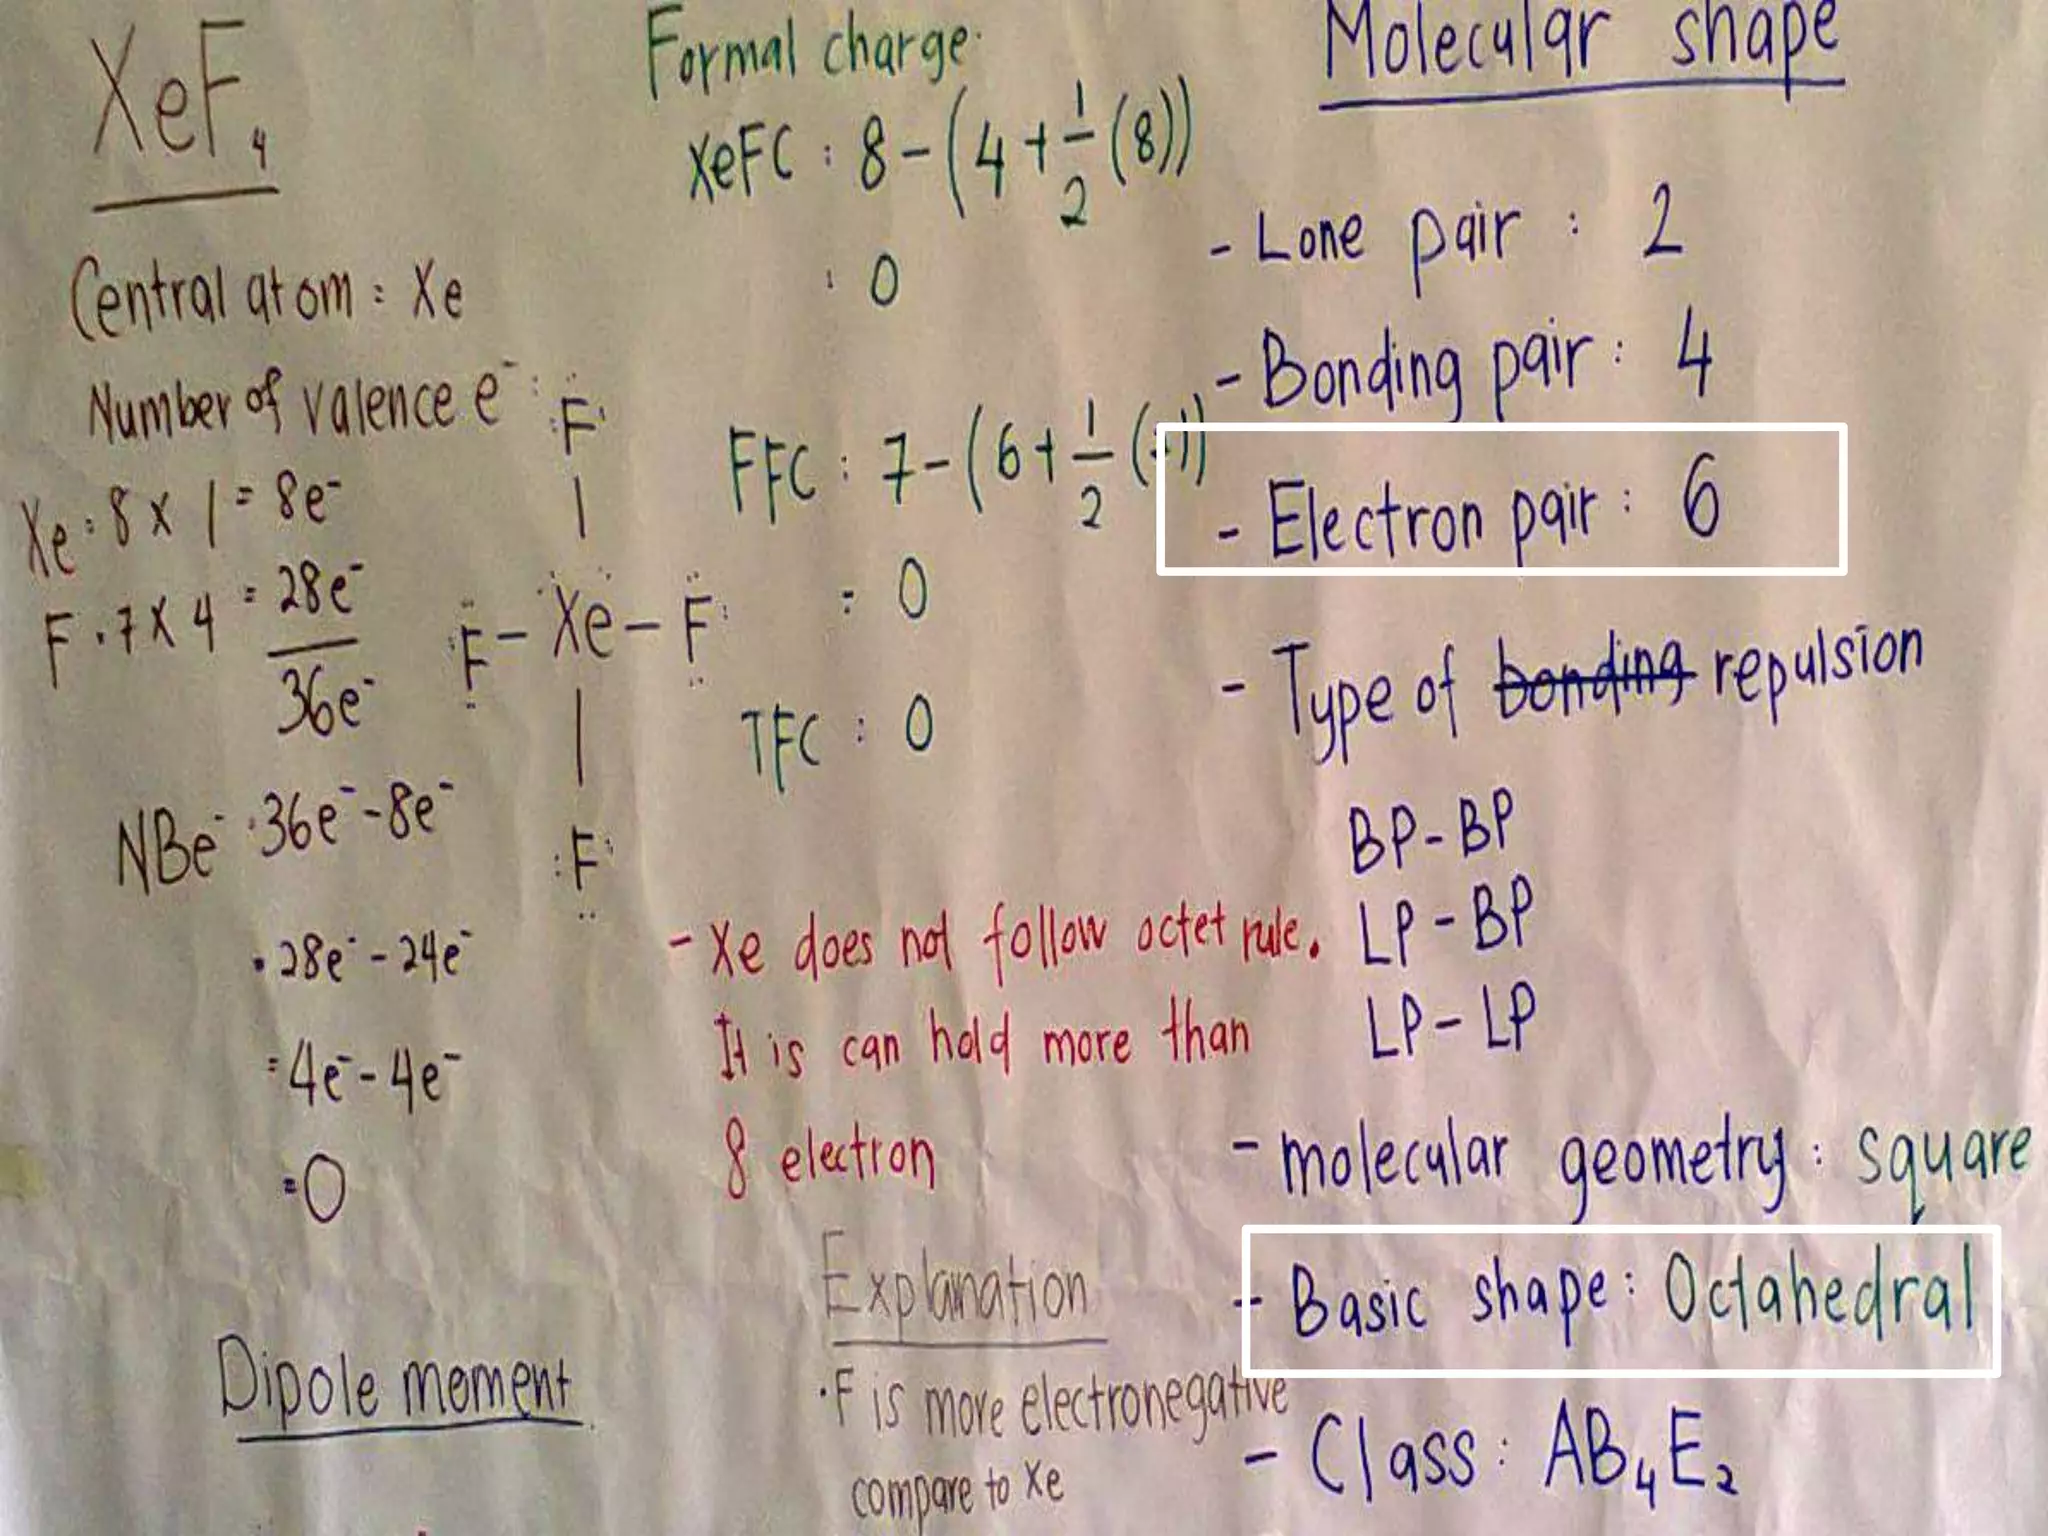 XeF₄
Central atom : Xe
Number of valence e⁻ :
Xe : 8 x 1 = 8e⁻
F . 7 x 4 = 28e⁻
36e⁻
NBe⁻ . 36e⁻ - 8e⁻
. 28e⁻ - 24e⁻
= 4e⁻ - 4e⁻
= 0
F
F - Xe - F
F
Dipole moment
Formal charge.
XeFC : 8 - (4 + 1/2 (8))
: 0
FFC : 7 - (6 + 1/2
= 0
TFC : 0
- Xe does not follow octet rule.
It is can hold more than
8 electron
Explanation
. F is more electronegative
compare to Xe
Molecular shape
- Lone pair : 2
- Bonding pair : 4
- Electron pair : 6
- Type of bonding repulsion
BP - BP
LP - BP
LP - LP
- molecular geometry : square
- Basic shape : Octahedral
- Class : AB₄E₂